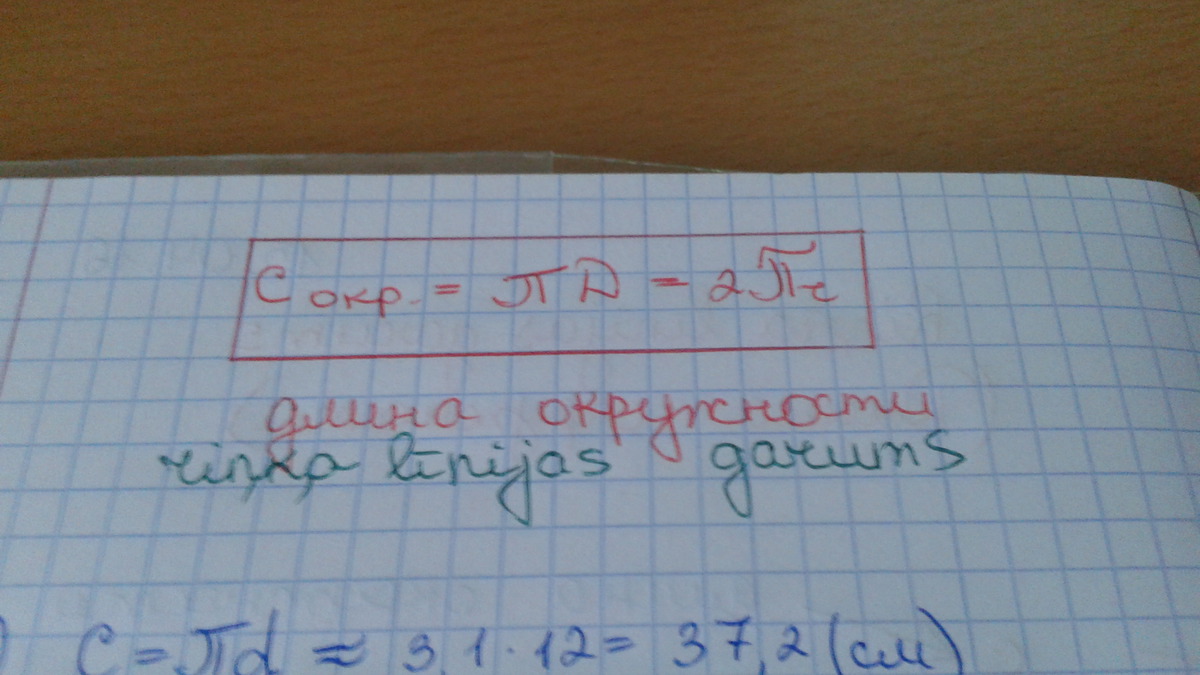 C окр. = πD = 2πr
длина окружности
riņķa līnijas garums
C = πd ≈ 3,1 · 12 = 37,2 (см)